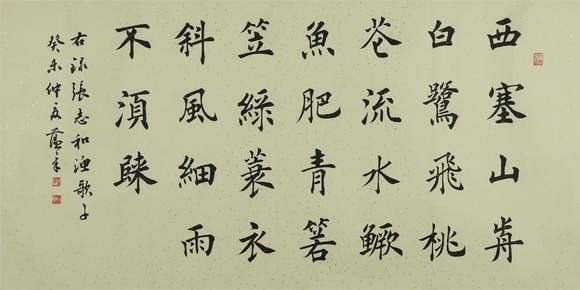 西塞山歬
白鷺飛桃
花流水鱖
魚肥青箬
笠綠蓑衣
斜風細雨
不湏歸
右録張志和漁歌子
癸未仲夏